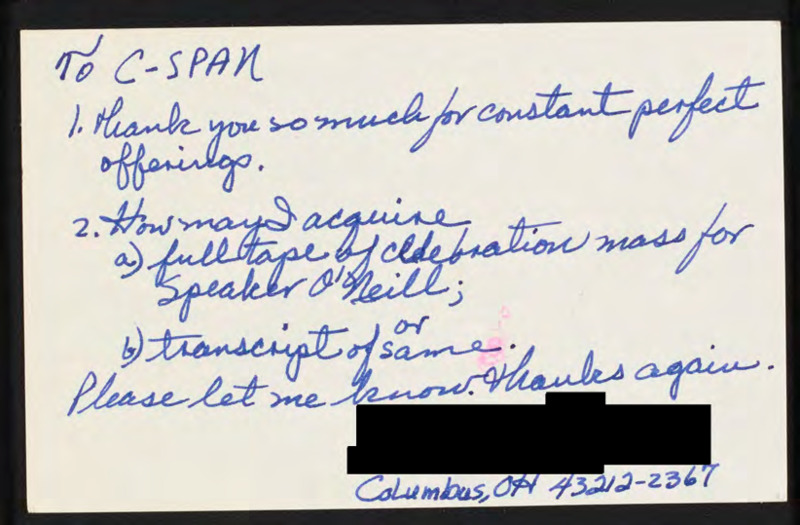 To C-SPAN
1. Thank you so much for constant perfect
offerings.
2. How may I acquire
a) full tape of celebration mass for
Speaker O'Neill;
or
b) transcript of same.
Please let me know. Thanks again.
Columbus, OH 43212-2367